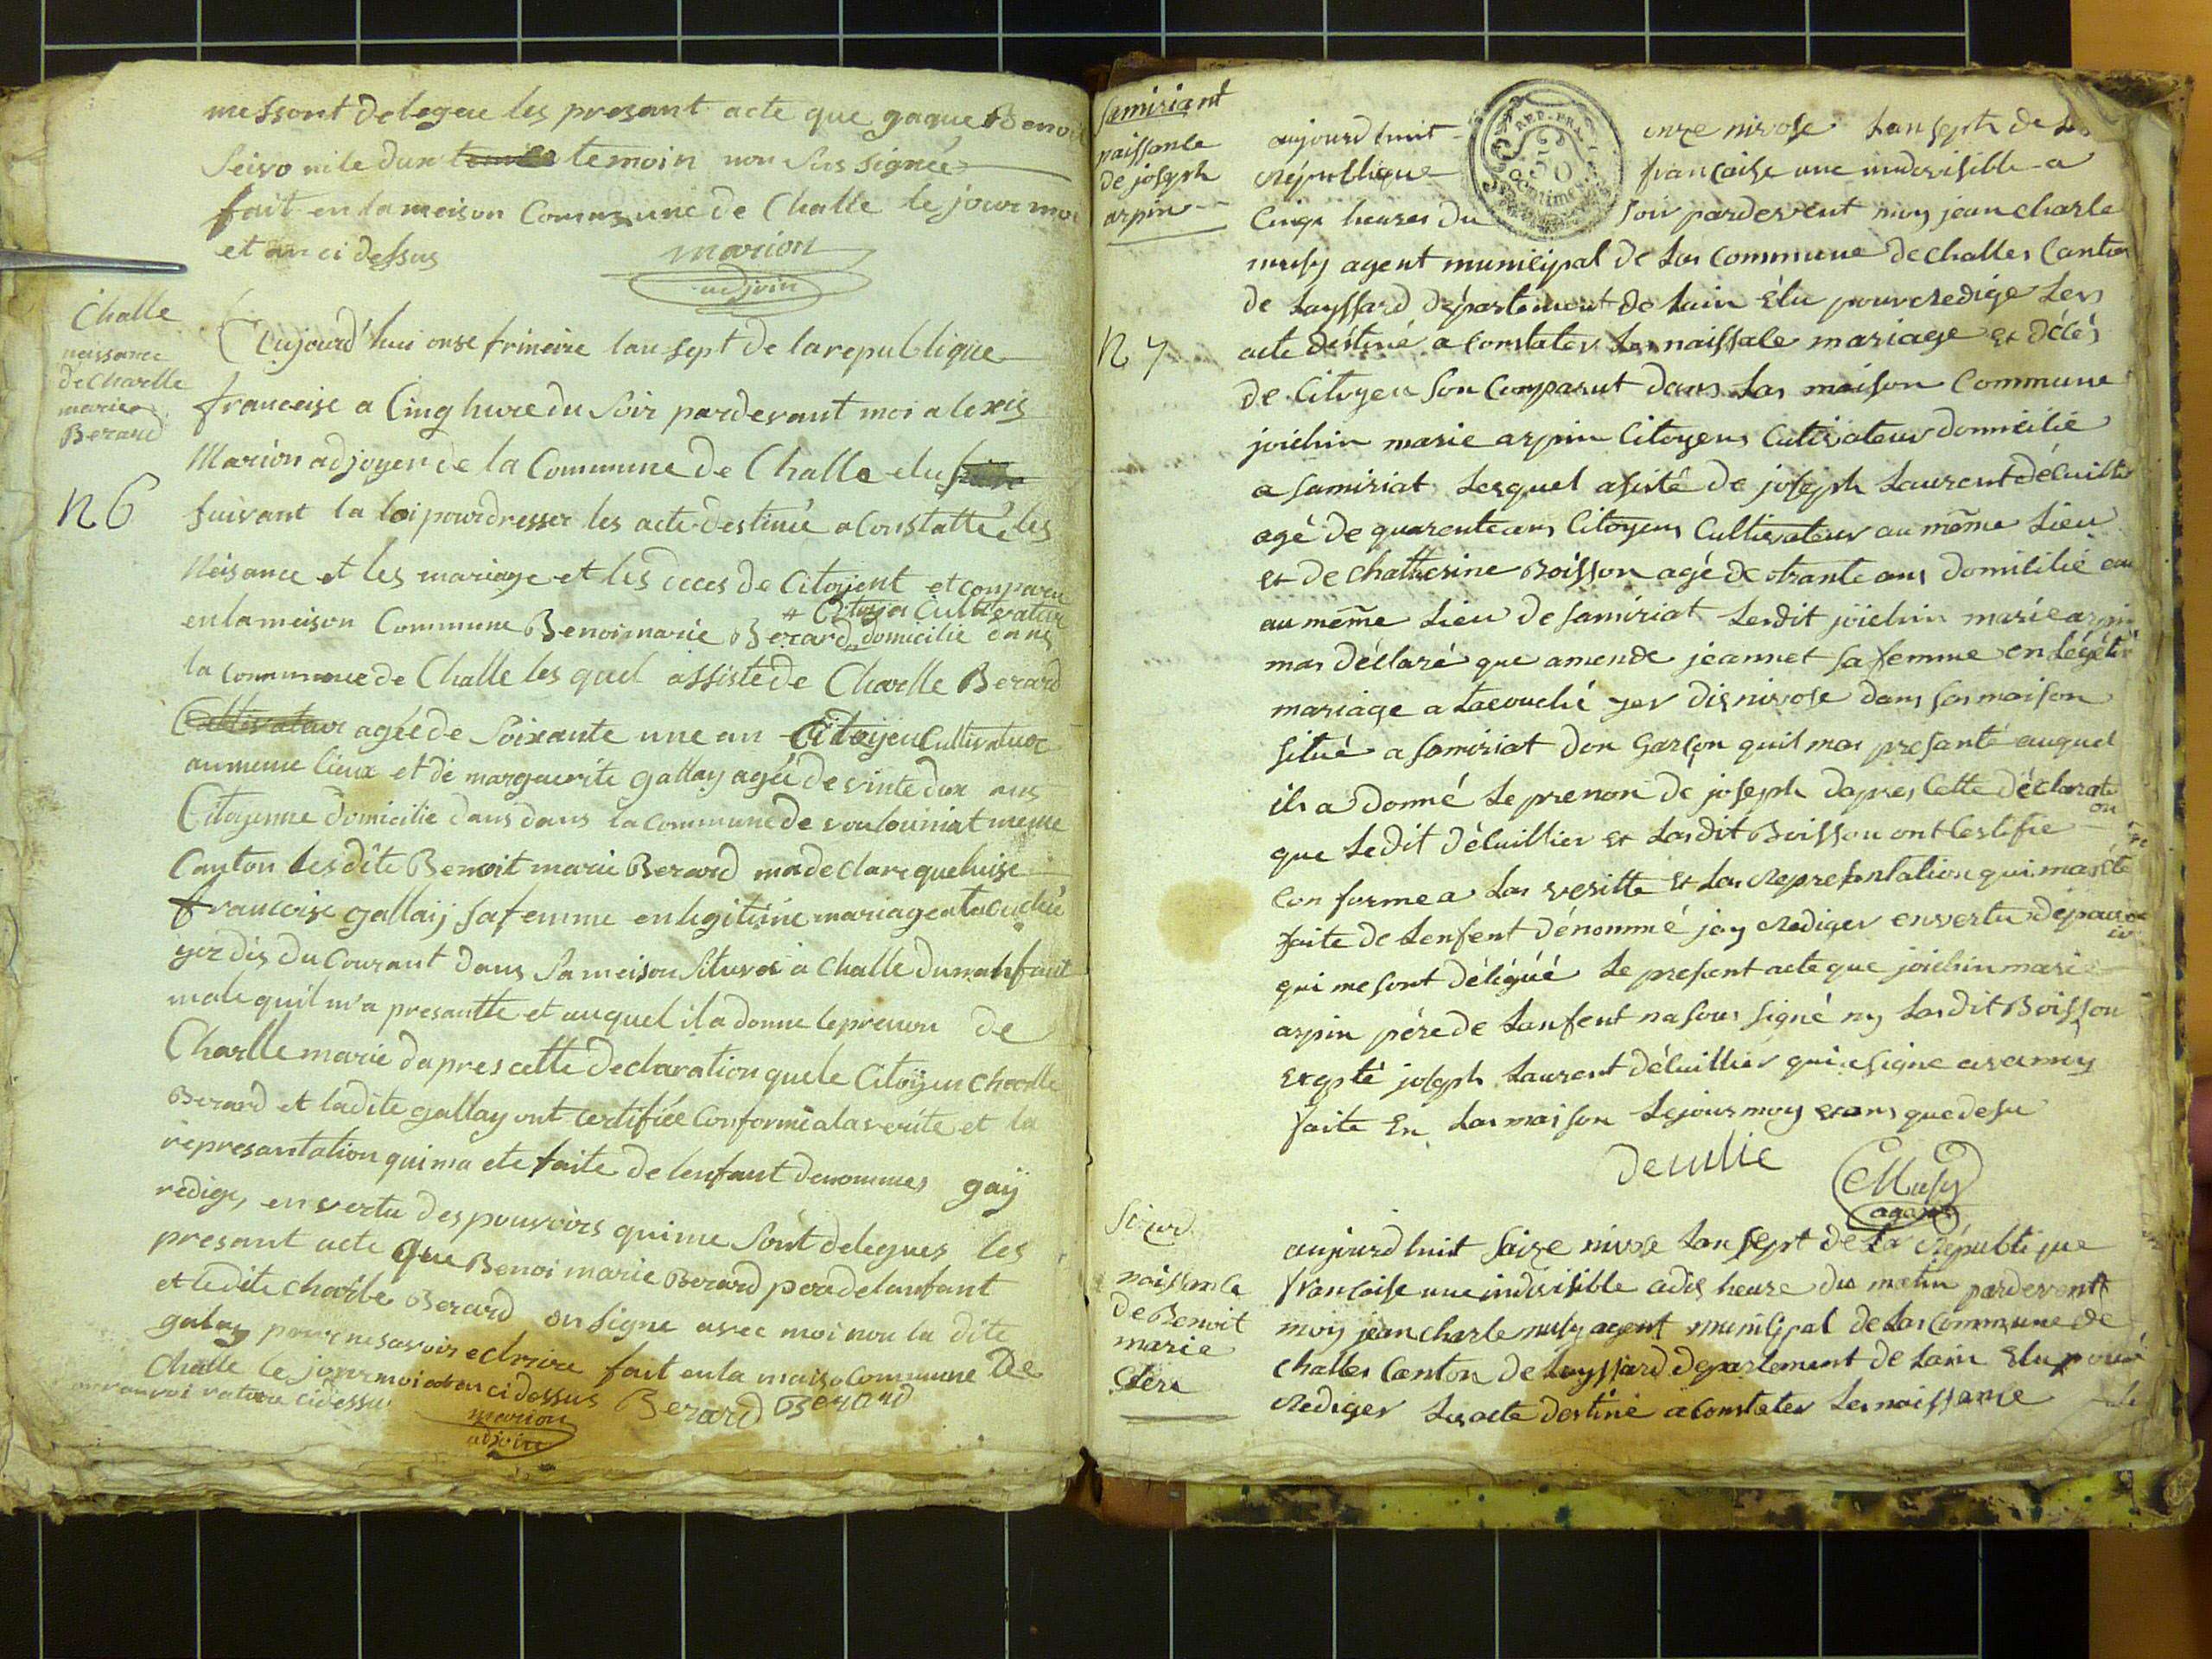 messont delegue les presant acte que gaque Benoi
Seivo nile dun temoin non Sus signée
fait en la maison Commune de Challe le jour moi
et an ci dessus
marion
adjoin
Challe
naissance
de Charlle
marie
Berard
N 6
Aujourd'hui onse frimeire lan sept de la republique
francoise a Cinq hure du Soir pardevant moi alexis
Marion adjoyen de la Commune de Challe elu
suivant la loi pour dresser les acte destinée a Constatté les
Neisance et les mariage et les deces de Citoyent et conparu
+ Citoyen Cultivateur
en la meison Commune Benoi marie Berard domicilie dans
la commune de Challe les quel assiste de Charlle Berard
Cultivateur agée de Soixante une an Citoijen Cultivateur
au meme lieux et de marguerite gallay agée de vinte dux ans
Citoyenne domicilie dans dans la commune de voulouniat meme
Canton les dite Benoit marie Berard ma declare que luise
francoise gallaij sa femme en legitime mariage
iyer dis du Courant dans Sa meison Situee a Challe dun anfant
male quil m'a presantte et auquel il a donne le prenon de
Charlle marie dapres cette declaration que le Citoÿen Charlle
Berard et ladite gallay ont certifiée Conforme a la verite et la
represantation qui ma ete faite de lenfant denommes gaÿ
redige, en vertu des pouvoirs qui me Sont delegues les
presant acte que Benoi marie Berard pere de lanfant
et le dite Charlle Berard on Signe avec moi non la dite
galay pour ne savoir ecbrire fait en la maiso Commune De
Challe le jour moi et an ci dessus Berard Berard
cidessu
marion
adjoin
Samiriant
naissanle
de joseph
arpin
aujourd huit onze nivose Lan septh de La
République francaise une indivisible a
REP. FRA.
50
centimes
Cinqe heures du soir pardevent moy jean charle
musy agent municipal de Las commune de challes Canton
de Layssard département de Lain Élu pour redige Les
N 7
acte déstiné a constater Les naissale mariage et décés
de Citoyen Son Comparut dans Las maison Commune
joichin marie arpin Citoyens Cultivateur domicilié
a samiriat Lesquel asisté de joseph Laurent déluillier
agé de quarente ans Citoyens Cultivateur au même Lieu
et de chatherine Boisson agé de trante ans domicilié au
au même Lieu de samiriat Ledit joichin marie arpin
mas déclaré que amende jeannet sa femme en Légétim
mariage a Lacouché yer dis nivose dans sas maison
situé a samiriat don Garson quil mas presanté auquel
ils a donné Le prenon de joseph dapres cette déclarati
on
que Ledit déluillier et Lasdit Boisson ont lestifie
conforme a Las veritte et Las represantation qui mas été
faite de Lenfent dénommé jay rediger en vertu de pauvoir
qui me sont délégué Le present acte que joichin marie
arpin pére de Lanfent na sous signé ny Lasdit Boisson
Exepté joseph Laurent déluillier qui a signe avec moy
faite En Las maison Le jour moy et ans que desu
Deulie
Musy
agant
Naissanle
de Benoit
marie
aujourd huit saize nivose Lan sept de La République
francaise une indivisible a dis heure du matin pardevent
moy jean charle musy agent municipal de Las Commune de
challes Canton de Layssard departement de Lain Elu pour
rediger Les acte destiné a Constater Les naissance